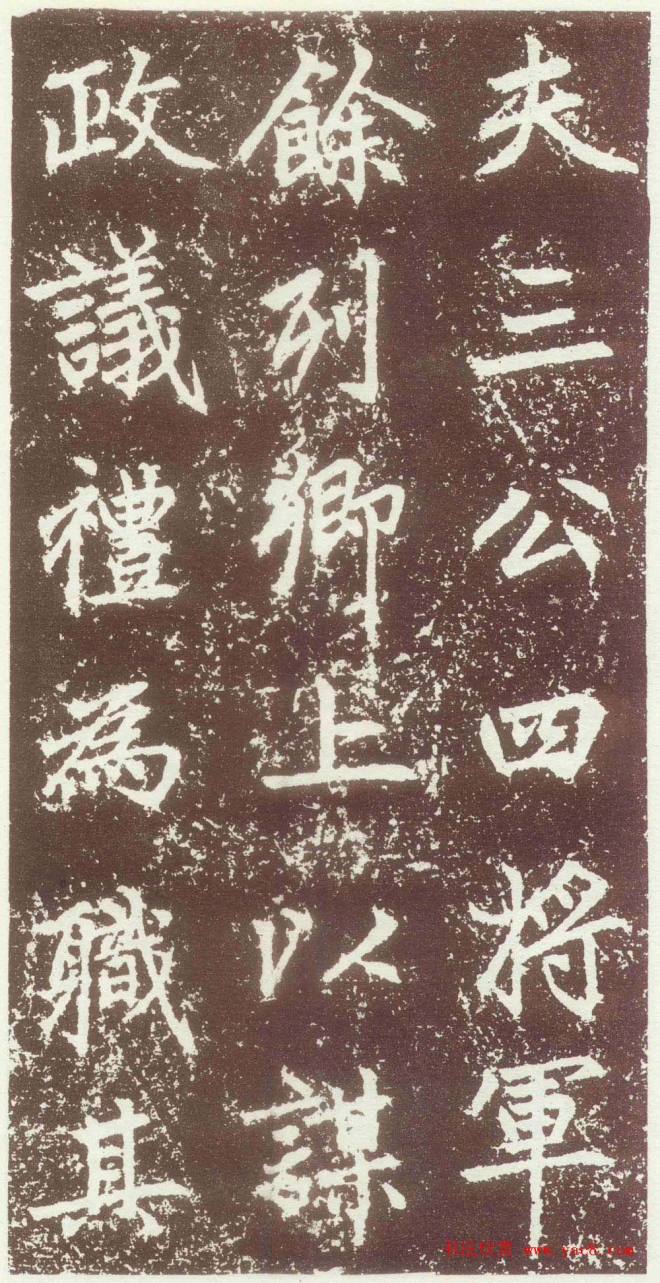 夫三公四将軍
餘列卿上以謀
政議禮為職其
书法欣赏 www.yac8.com